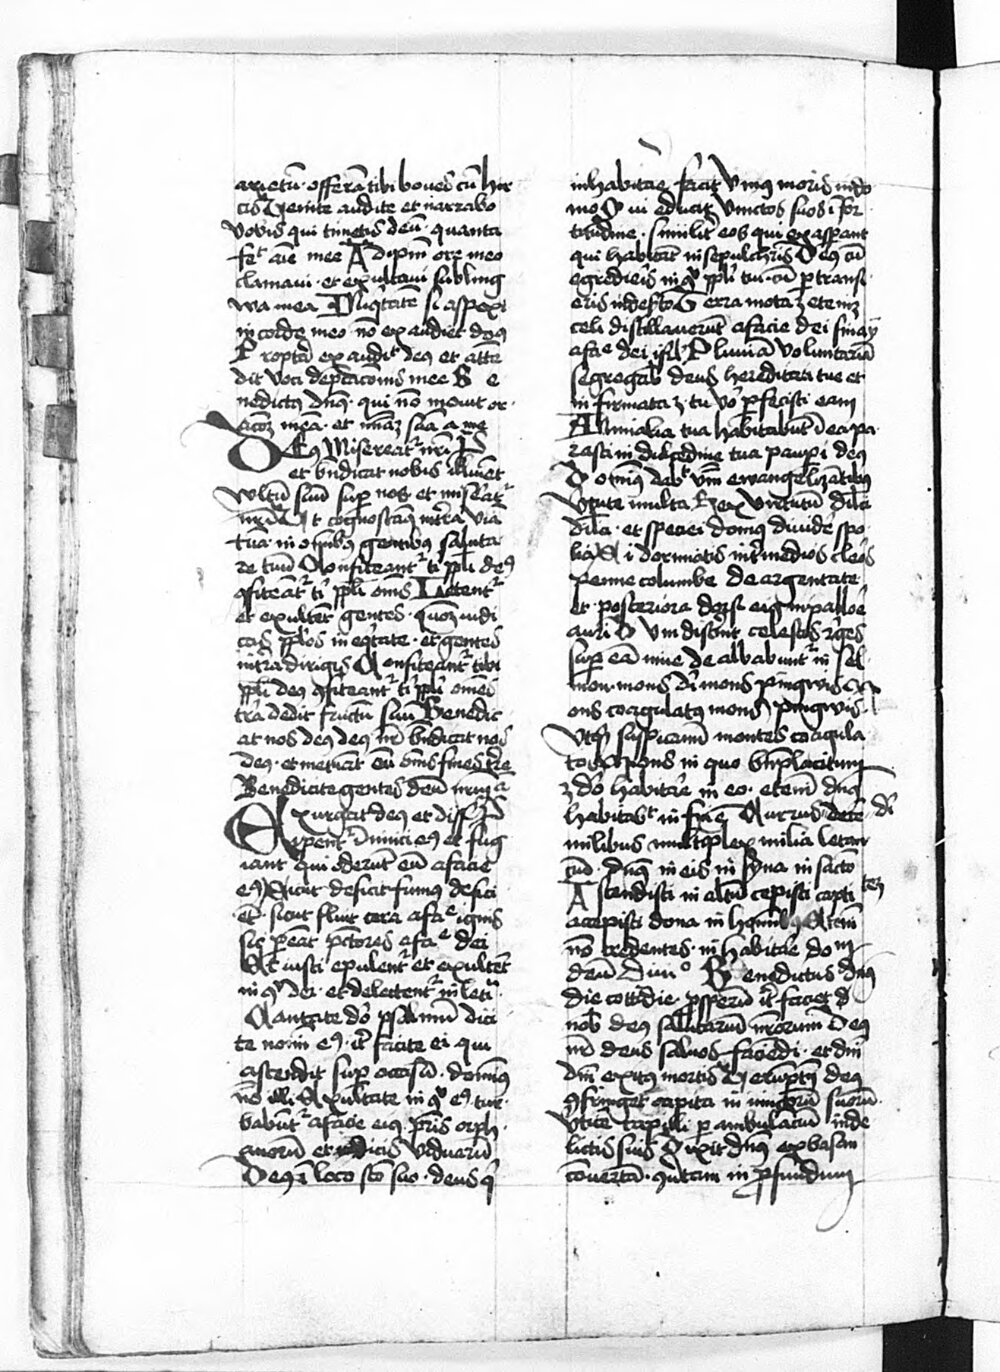 arietu͞. offera͞ tibi boues cu͞ hir
cis Uenite audite et narrabo
vobis qui timetis deu͞. quanta
fet aie͞ mee Ad ipm͞ ore meo
clamaui. et exultaui sub ling
wa mea Iniq͛tate͞ si aspexi
in corde meo no͞ exaudiet dn͞s
Propt͛a exaudit deꝰ et atte͞
dit voci dep͛cac͞onis mee B e
nedictꝰ dn͞s. qui no͞ mouit or
ac͞oꝫ mea͞. et mi͞aꝫ sua͞ a me
DEꝰ Misereat͛ nr͞i
et bn͞dicat nobis illui͞et
wltu͞ suu͞ sup nos et mis͛eat͛
nr͞i Ut cognoscaꝰ in t͛ra via͞
tua͞. in om͞ibꝰ gentibꝰ saluta
re tuu͞ Confiteant͛ ti͛ ppl͞i deꝰ
ꝯfiteant͛ ti͛ ppl͞i om͞s Letent͛
et exultet͞ gentes. qm͞ iudi
cas pplo͞s in eq͛tate. et gentes
in t͛ra dirigis Confiteant͛ tibi
ppl͞i deꝰ ꝯfiteant͛ ti͛ ppl͞i om͞es
t͛ra dedit fructu͞ suu͞ Benedic
at nos deꝰ deꝰ nr͞ bn͞dicat nos
deꝰ. et metuat͞ eu͞ om͞s fines t͛re
Benedicite gentes deu͞ nrm͞
Exurgat deꝰ et diss
ipent͛ inimici eꝰ et fug
iant qui oderut͞ eu͞ a facie
eꝰ Sicut deficit fumꝰ defici
et͞. sicut fluit cera a fae ignis
sic peat͞ pc͞tores a fae dei
Et iusti epulent͛ et exultet͞
in ꝯ͛ dei. et delectent͛ in leti͛
Cantate do͞ psalmu͞ dici
te nom͞i eꝰ. it͛ facite ei qui
ascendit sup occasu͞. dominꝰ
no͞ illi Exultate in ꝯ͛ eꝰ tur
babunt͛ a facie eiꝰ. pr͞is orph
anoru͞ et iudicis viduaru͞
Deꝰ i͞ loco sc͞o suo. deus q͛
inhabitare facit vniꝰ moris in do
mo Qui educit vinctos suos i͞ for
titudine. similit͛ eos qui exaspant
qui habitat͞ in sepulchris Deꝰ cu͞
egredieris in ꝯ͛ ppl͞i tui. cu͞ ptransi
eris in deserto Terra mota ꝫ eteniꝫ
celi distillauerut͞ a facie dei sinay
a fae dei isrl͞ Pluuia͞ voluntaria͞
segregab͛ deus hereditati tue et
infirmata ꝫ. tu vo͛ pfecisti eam
Animalia tua habitabut͞ i͞ ea pa
rasti in dulcedine tua paupi deꝰ
Dominꝰ dabt vbm͞ ewangelizantibꝰ
v͛tute multa Rex virtutu͞ dil͞ci
dil͞ci. et speciei domꝰ diuide͛ spo
lia Si dormiatis int͛ medios cleros
penne columbe de argentate
et posteriora dorsi eiꝰ in pallore͛
auri Dum discnit͛ celestis reges
sup ea͞ niue de albabunt͛ in sel
mon. mons di͞ mons pingwis M
ons coagulatꝰ mons pingwis
vtq͛ suspicamini montes coagula
tos Mons in quo bn͞placitum
ꝫ do͛ habitare in eo. etenim dn͞s
habitabt in fine͞ Currus dece͞ di͛
milibus multiplex milia letan
ciu͞. dn͞s in eis in syna in sancto
Ascendisti in altu͞ cepisti capti teꝫ
accepisti dona in ho͞ibꝰ Etem͛
no͞ credentes. inhabitare dom
deu͞ Benedictus dn͞s
die cottidie. psperu͞ it͛ faciet
nob͛ deꝰ salutariu͞ nr͞orum Deꝰ
nr͞ deus saluos faciendi. et dni͞
dni͞ exitꝰ mortis Ueru͞ptn͞ deꝰ
ꝯfringet capita in imicoru͞ suoru͞
vtice͞ capilli pambulaciu͞ in de
lictis suis Dixit dn͞s ex basan
couerta͞. ꝯuertam in pfundum